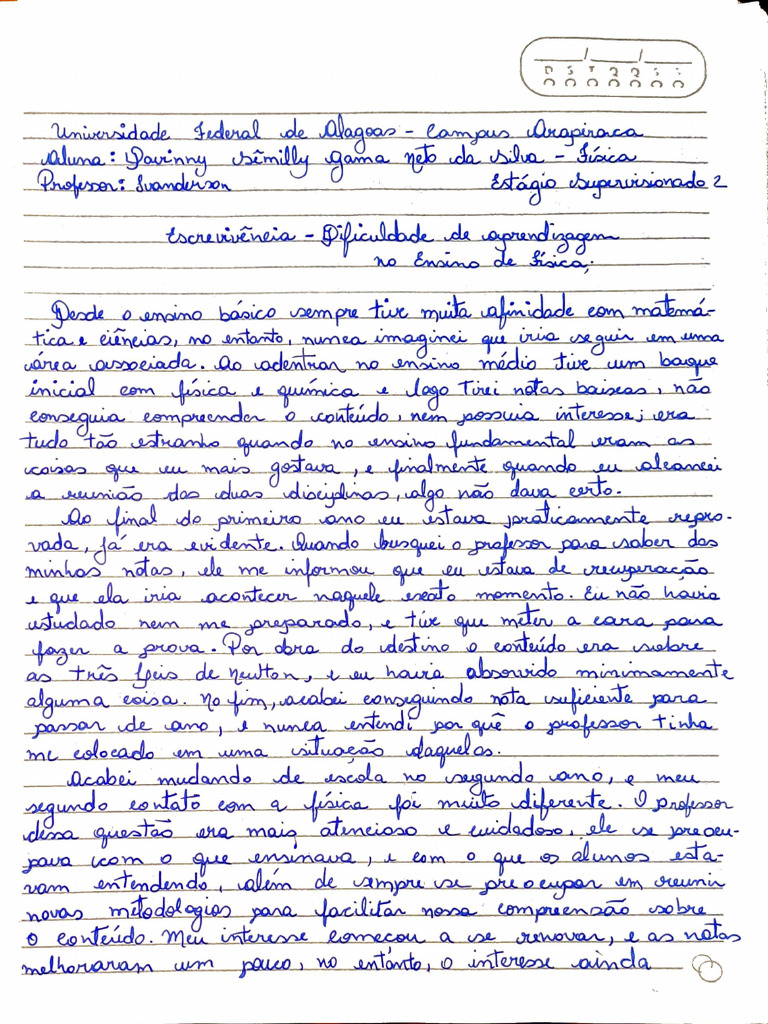 __/__/__
D S T Q Q S S
Universidade Federal de Alagoas - Campus Arapiraca
Aluna: Davinny Sêmilly Gama Neto da Silva - Física
Professor: Ivanderson Estágio Supervisionado 2
Escrevivência - Dificuldade de aprendizagem
no Ensino de Física;
Desde o ensino básico sempre tive muita afinidade com matemá-
tica e ciências, no entanto, nunca imaginei que iria seguir em uma
área associada. Ao adentrar no ensino médio tive um baque
inicial com física e química e logo tirei notas baixas, não
conseguia compreender o conteúdo, nem possuia interesse; era
tudo tão estranho quando no ensino fundamental eram as
coisas que eu mais gostava, e finalmente quando eu alcancei
a reunião das duas disciplinas, algo não dava certo.
Ao final do primeiro ano eu estava praticamente repro-
vada, já era evidente. Quando busquei o professor para saber das
minhas notas, ele me informou que eu estava de recuperação
e que ela iria acontecer naquele exato momento. Eu não havia
estudado nem me preparado, e tive que meter a cara para
fazer a prova. Por obra do destino o conteúdo era sobre
as três leis de Newton, e eu havia absorvido minimamente
alguma coisa. No fim, acabei conseguindo nota suficiente para
passar de ano, e nunca entendi por quê o professor tinha
me colocado em uma situação daquelas.
Acabei mudando de escola no segundo ano, e meu
segundo contato com a física foi muito diferente. O professor
dessa questão era mais atencioso e cuidadoso, ele se preocu-
pava com o que ensinava, e com o que os alunos esta-
vam entendendo, além de sempre se preocupar em reunir
novas metodologias para facilitar nossa compreensão sobre
o conteúdo. Meu interesse começou a se renovar, e as notas
melhoraram um pouco, no entanto, o interesse ainda